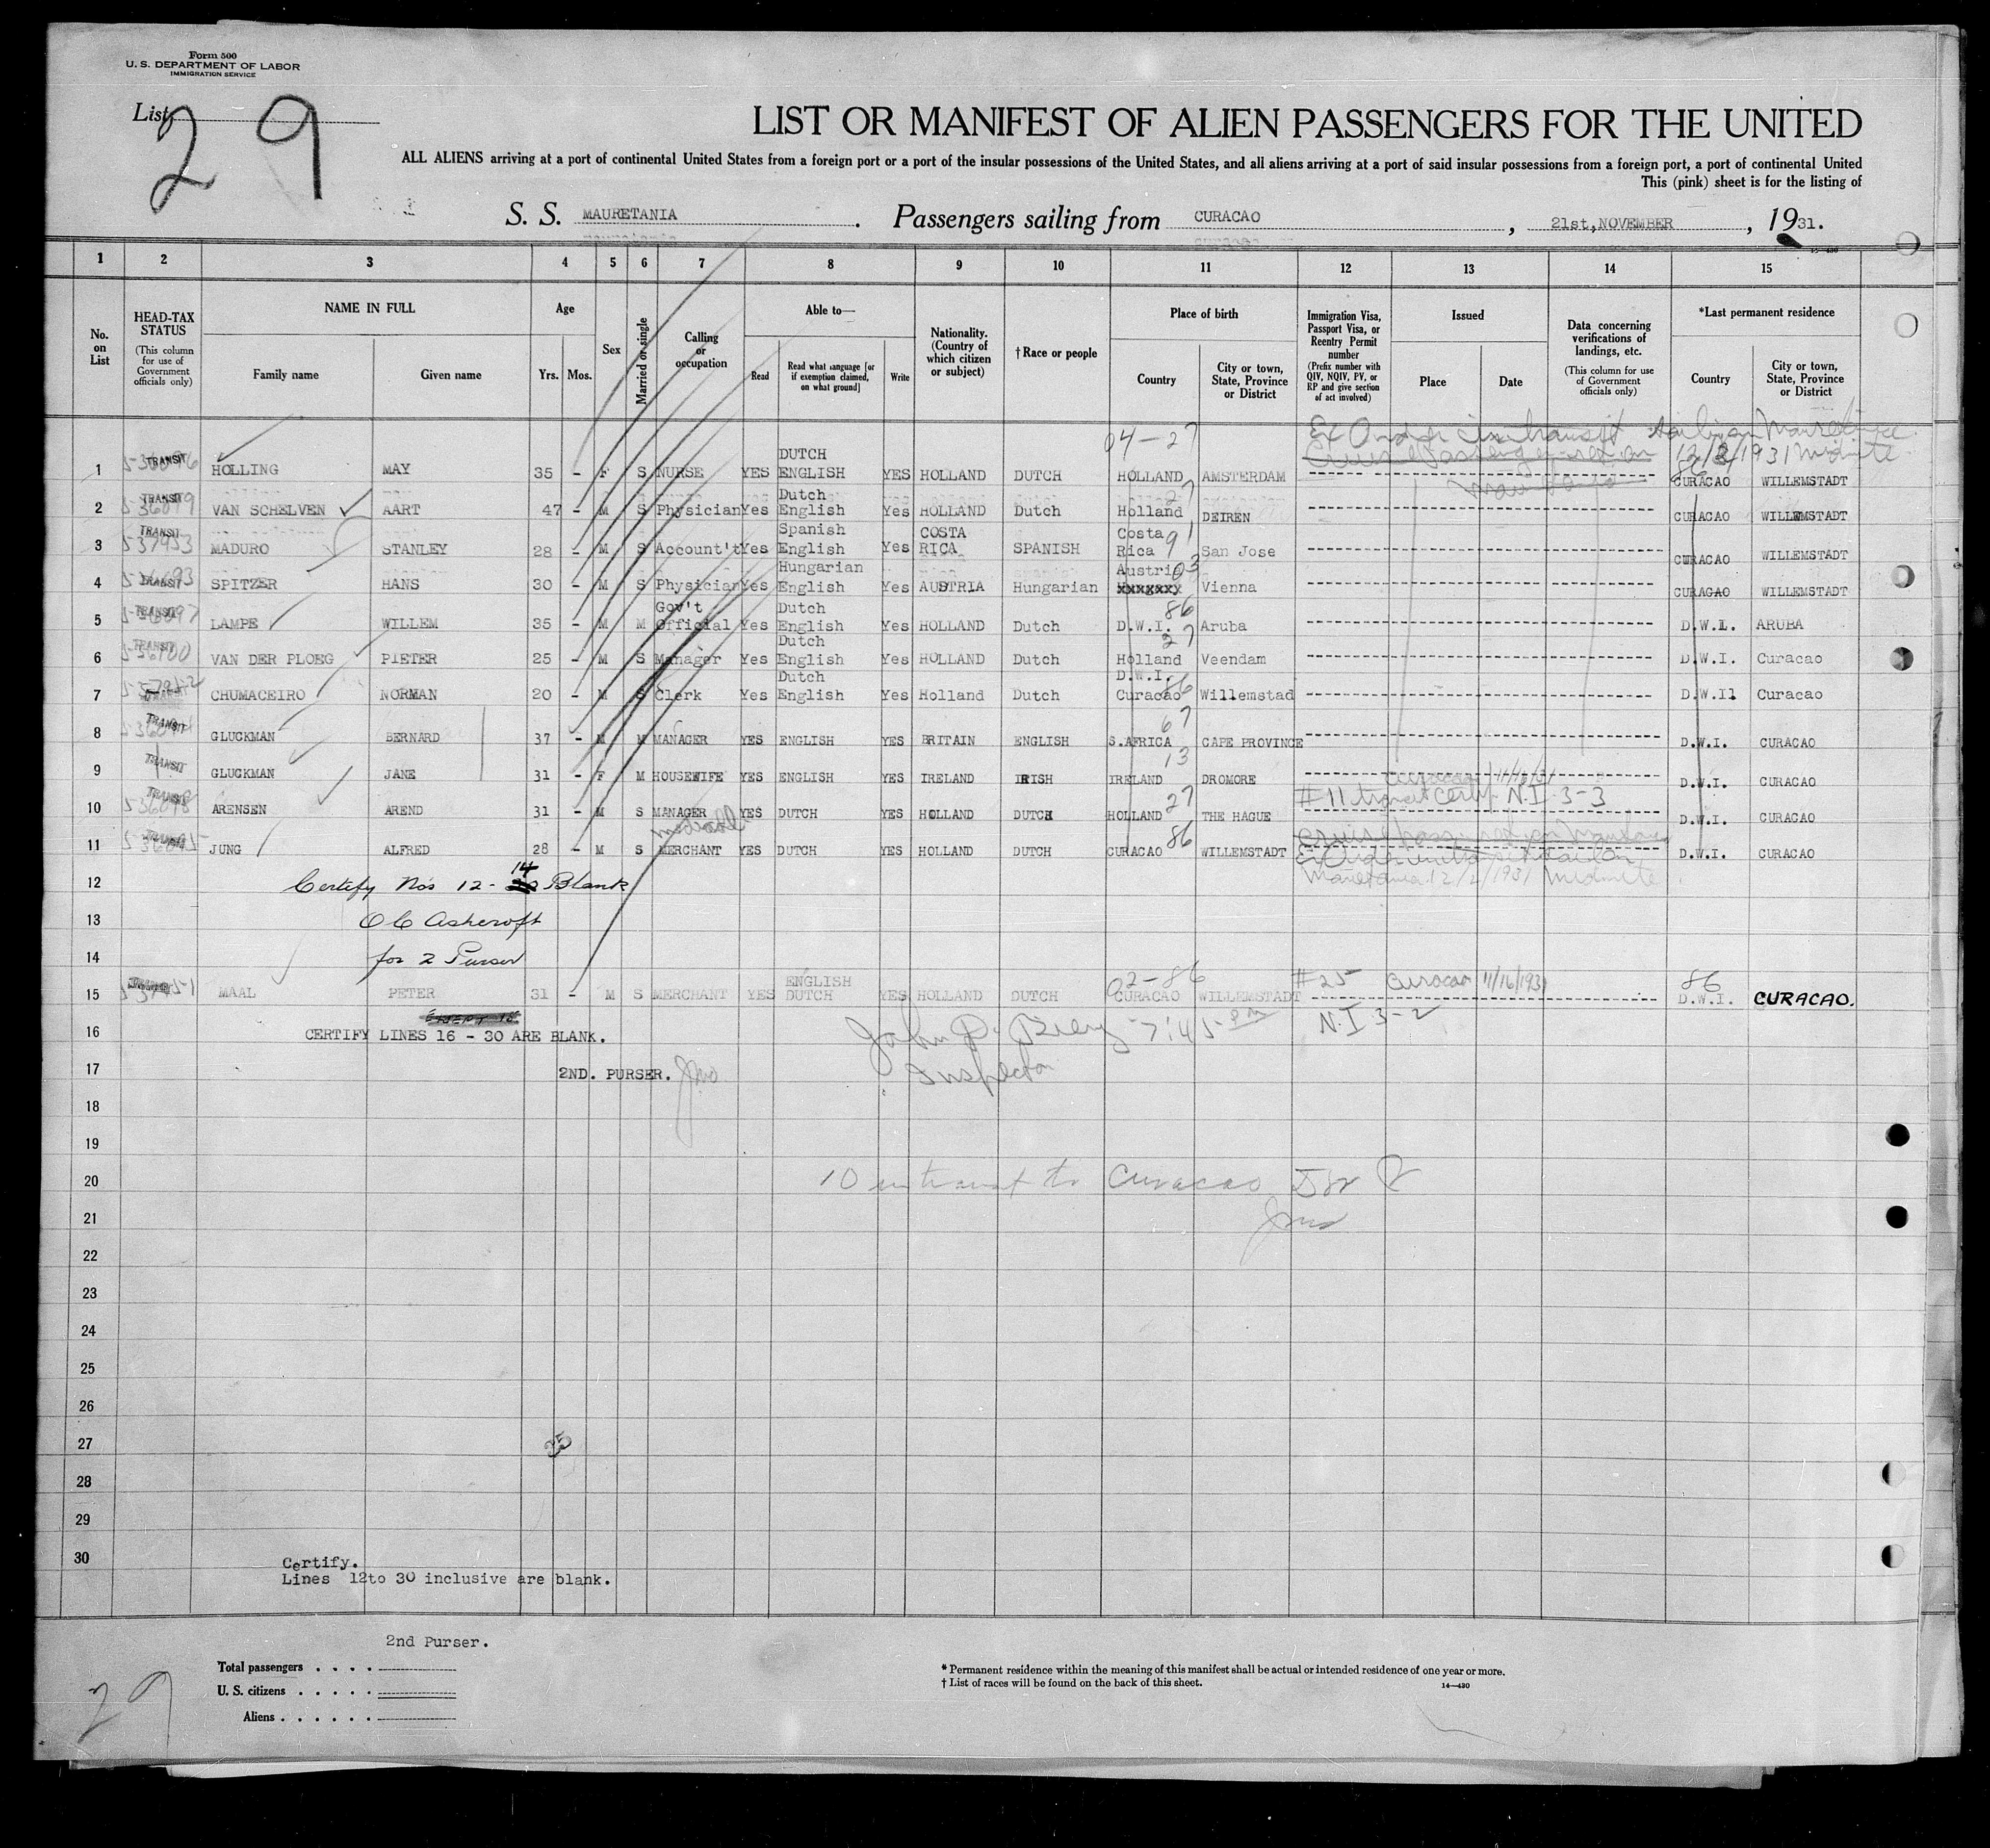 Form 500
U. S. DEPARTMENT OF LABOR
IMMIGRATION SERVICE
List 29
LIST OR MANIFEST OF ALIEN PASSENGERS FOR THE UNITED
ALL ALIENS arriving at a port of continental United States from a foreign port or a port of the insular possessions of the United States, and all aliens arriving at a port of said insular possessions from a foreign port, a port of continental United
This (pink) sheet is for the listing of
S. S. MAURETANIA. Passengers sailing from CURACAO, 21st, NOVEMBER, 1931.
1 2 3 4 5 6 7 8 9 10 11 12 13 14 15
No. on List
HEAD-TAX STATUS (This column for use of Government officials only)
NAME IN FULL
Family name Given name
Age
Yrs. Mos.
Sex
Married or single
Calling or occupation
Able to—
Read
Read what language [or if exemption claimed, on what ground]
Write
Nationality. (Country of which citizen or subject)
† Race or people
Place of birth
Country
City or town, State, Province or District
Immigration Visa, Passport Visa, or Reentry Permit number (Prefix number with QIV, NQIV, PV, or RP and give section of act involved)
Issued
Place Date
Data concerning verifications of landings, etc. (This column for use of Government officials only)
*Last permanent residence
Country
City or town, State, Province or District
04-27
1 TRANSIT HOLLING MAY 35 - F S NURSE YES DUTCH ENGLISH YES HOLLAND DUTCH HOLLAND AMSTERDAM CURACAO WILLEMSTADT
2 TRANSIT VAN SCHELVEN AART 47 - M S Physician Yes Dutch English Yes HOLLAND Dutch Holland 27 DEIREN CURACAO WILLEMSTADT
3 TRANSIT MADURO STANLEY 28 - M S Account't Yes Spanish English Yes COSTA RICA SPANISH Costa Rica 91 San Jose CURACAO WILLEMSTADT
4 TRANSIT SPITZER HANS 30 - M S Physician Yes Hungarian English Yes AUSTRIA Hungarian Austria 03 xxxxxxx Vienna CURACAO WILLEMSTADT
5 TRANSIT LAMPE WILLEM 35 - M M Gov't Official Yes Dutch English Yes HOLLAND Dutch D.W.I. 86 Aruba D.W.I. ARUBA
6 TRANSIT VAN DER PLOEG PIETER 25 - M S Manager Yes Dutch English Yes HOLLAND Dutch Holland 27 Veendam D.W.I. Curacao
7 CHUMACEIRO NORMAN 20 - M S Clerk Yes Dutch English Yes Holland Dutch D.W.I. Curacao 86 Willemstad D.W.Il Curacao
8 TRANSIT GLUCKMAN BERNARD 37 - M M MANAGER YES ENGLISH YES BRITAIN ENGLISH S.AFRICA 67 CAPE PROVINCE D.W.I. CURACAO
9 TRANSIT GLUCKMAN JANE 31 - F M HOUSEWIFE YES ENGLISH YES IRELAND IRISH IRELAND 13 DROMORE D.W.I. CURACAO
Curacao 11/16/31
#11 transit certif N.I 3-3
10 TRANSIT ARENSEN AREND 31 - M S MANAGER YES DUTCH YES HOLLAND DUTCH HOLLAND 27 THE HAGUE D.W.I. CURACAO
11 TRANSIT JUNG ALFRED 28 - M S MERCHANT YES DUTCH YES HOLLAND DUTCH CURACAO 86 WILLEMSTADT D.W.I. CURACAO
Mauretania 12/2/1931 Midnite
12 Certify Nos 12-14 Blank
13 O C Ashcroft
14 for 2 Purser
15 MAAL PETER 31 - M S MERCHANT YES ENGLISH DUTCH YES HOLLAND DUTCH 02-86 CURACAO WILLEMSTADT #25 Curacao 11/16/1931 86 D.W.I. CURACAO.
N.I 3-2
16 CERTIFY LINES 16 - 30 ARE BLANK.
7:45 PM
Inspector
17 2ND. PURSER.
18
19
20 10 in transit to Curacao
21
22
23
24
25
26
27 35
28
29
30 Certify.
Lines 12to 30 inclusive are blank.
2nd Purser.
Total passengers . . . .
U. S. citizens . . . . .
Aliens . . . . . .
29
* Permanent residence within the meaning of this manifest shall be actual or intended residence of one year or more.
† List of races will be found on the back of this sheet.
14—430